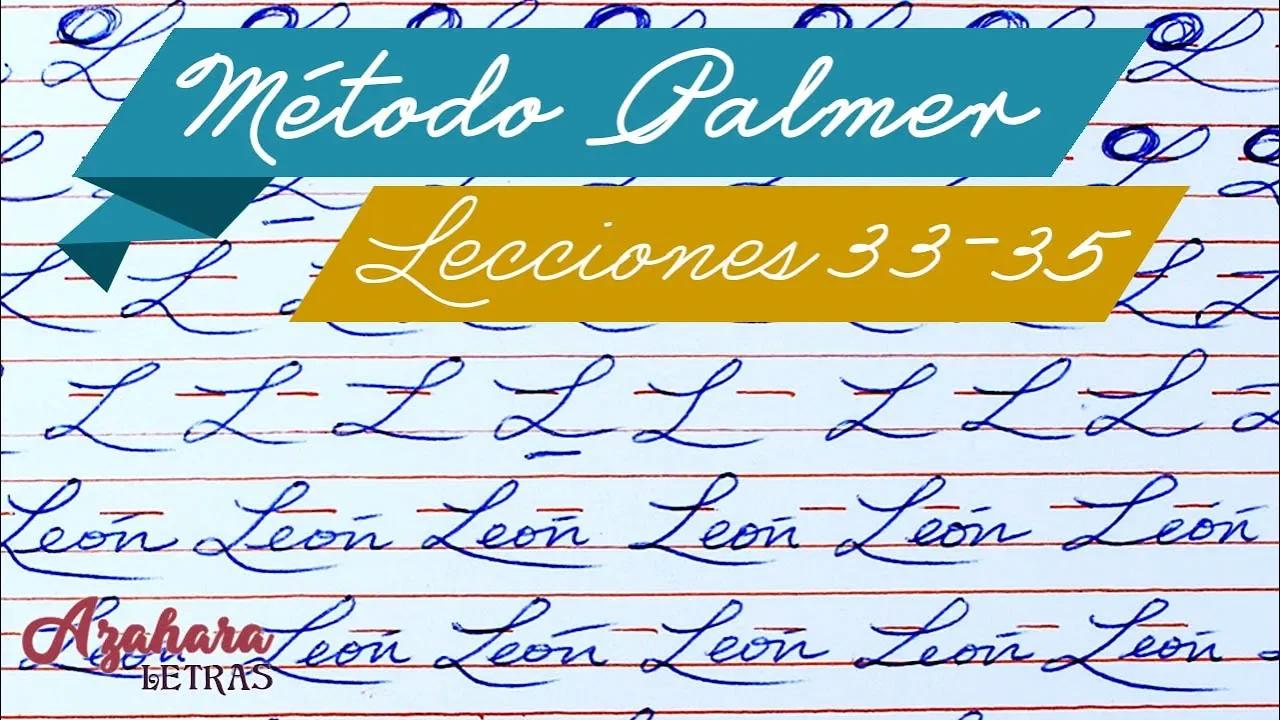 Método Palmer
Lecciones 33-35
L L L L
L L L L L L L L
León León León León León León
León León León León León León
Azahara
LETRAS